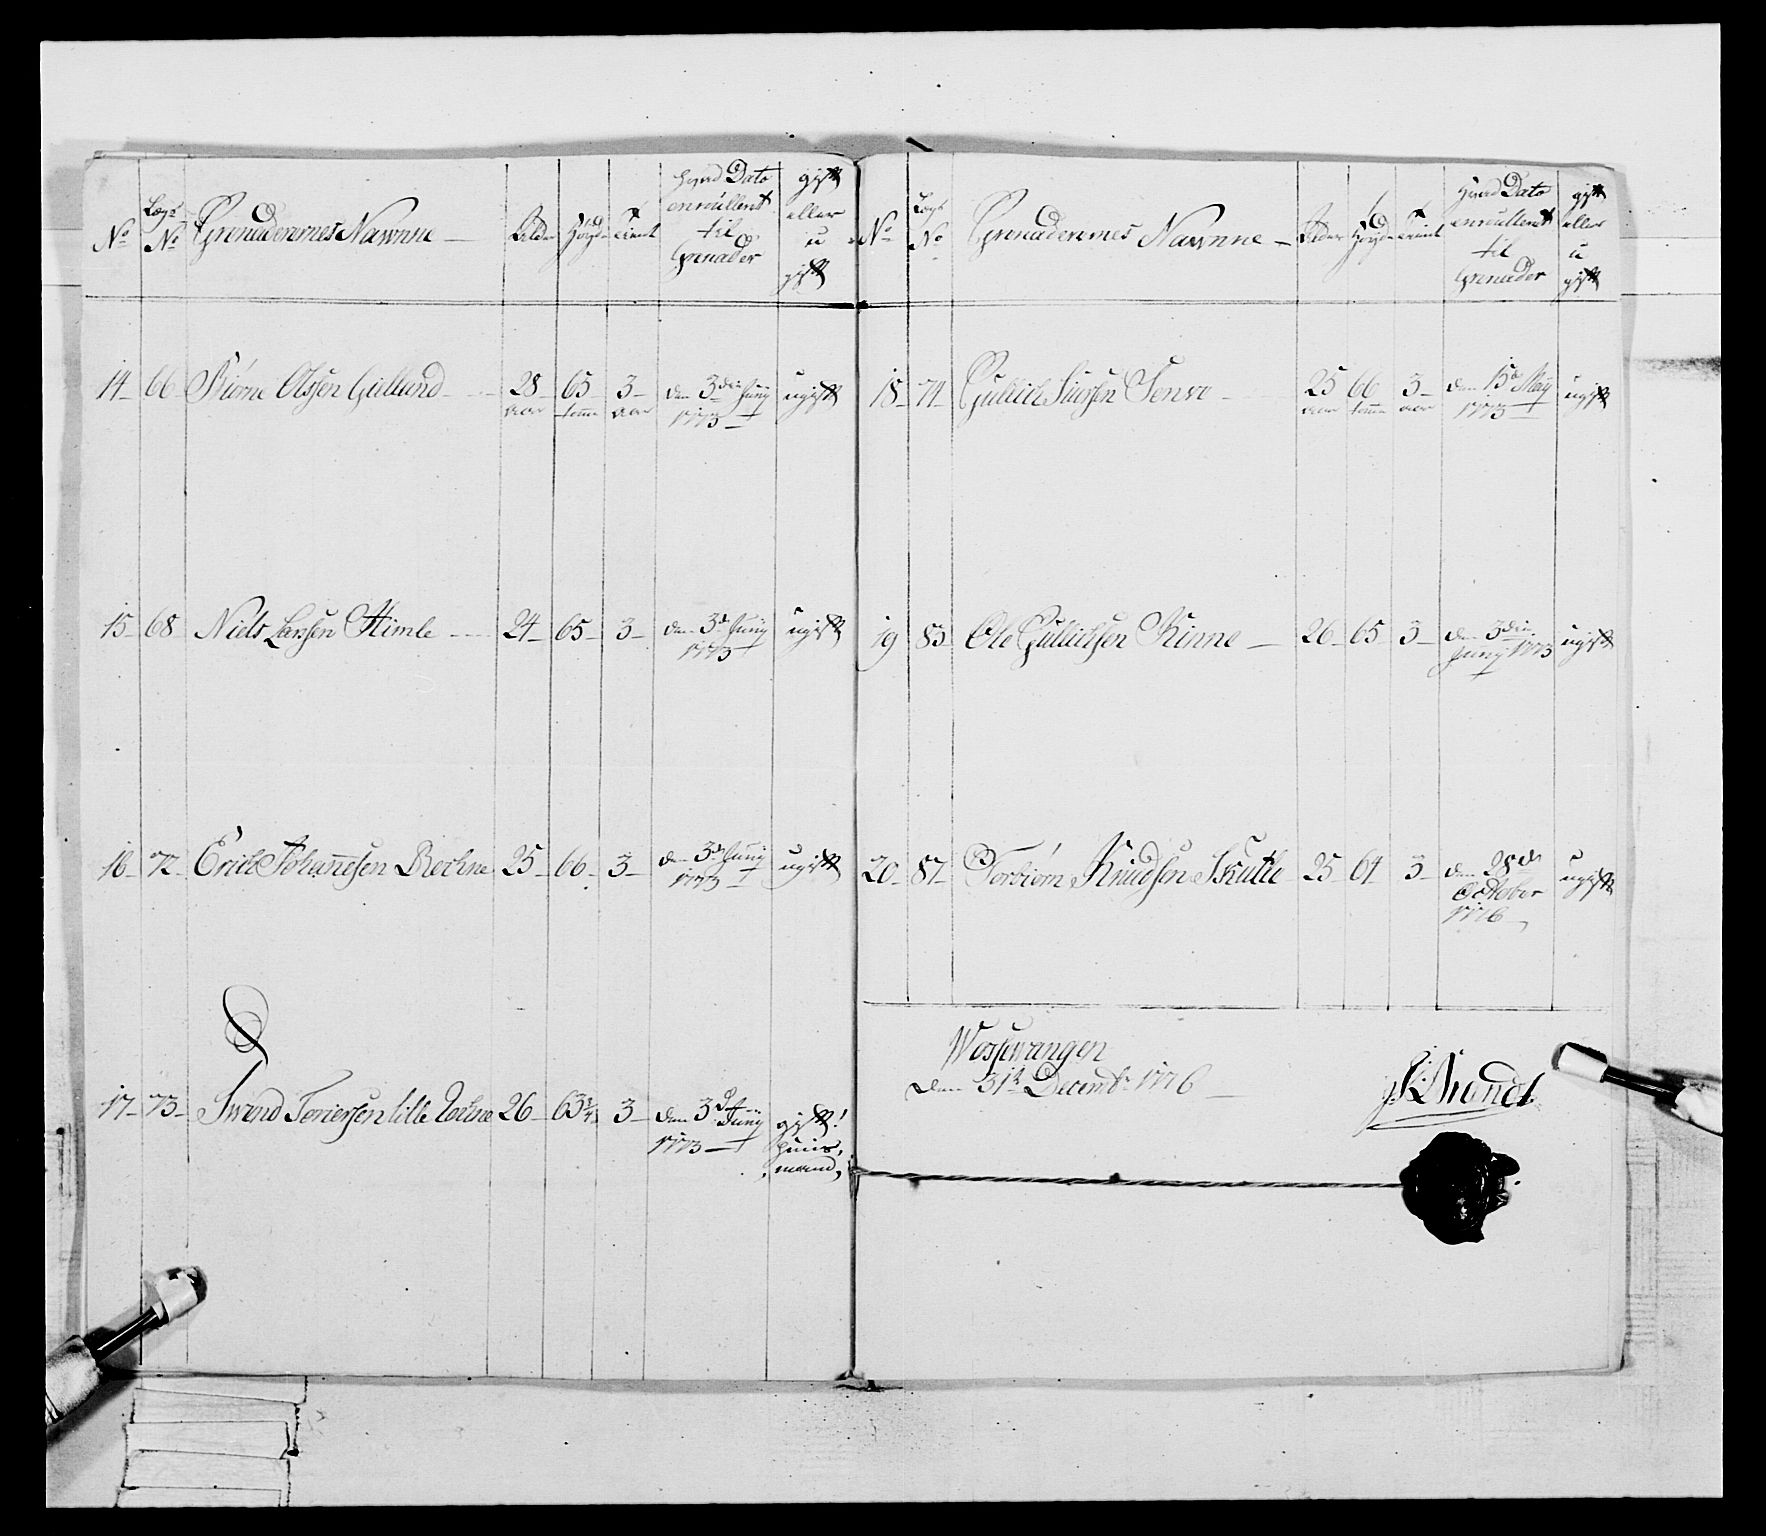 No
Lægs No
Grenaderernes Nawnne —
Alder
Høyde
Tient
Hvad Dato enrullert til Grenader
gift eller u gift
14 — 66 Biørne Olssen Gielland — 28 aar 65 tomme 3 — aar den 3die Junij 1773 ugift
15 — 68 Niels Larssen Himle — 24 — 65 — 3 — den 3d Junij 1773 ugift
16 — 72 — Erich Johannesen 25 — 66 — 3 — den 3d Junij 1773 ugift
17 — 73 — Swend lille 26 — 63 3/4 3 — den 3d Junij 1773 — gift! huus, mand,
No
Lægs No
Grenaderernes Nawnne —
Alder
Høyde
Tient
Hvad Dato enrullert til Grenader
gift eller u gift
18 — 74 — Gullich 25 aar 66 tomme 3 — aar den 15d Maij 1773 — ugift
19 83 Ole Gullichsen Rinne — 26 — 65 3 — den 3die Junij 1773 ugift
20 — 87 — Torbiørn Knudsen Skutle 25 — 64 3 — den 28de October 1776 — ugift
Wossewangen
den 31te Decembr 1776 —